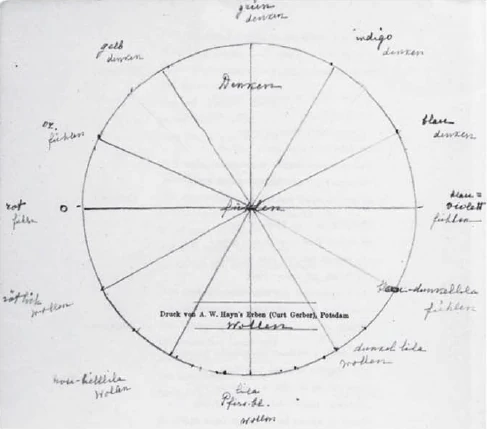 grün
denken
indigo
denken
gelb
denken
Denken
blau
denken
or.
fühlen
rot
fühlen
fühlen
blau=
violett
fühlen
rötlich
wollen
blau-dunkellila
fühlen
Druck von A. W. Hayn's Erben (Curt Gerber), Potsdam
Wollen
dunkel lila
wollen
rosa-helllila
wollen
lila
Pfirs.bl.
wollen